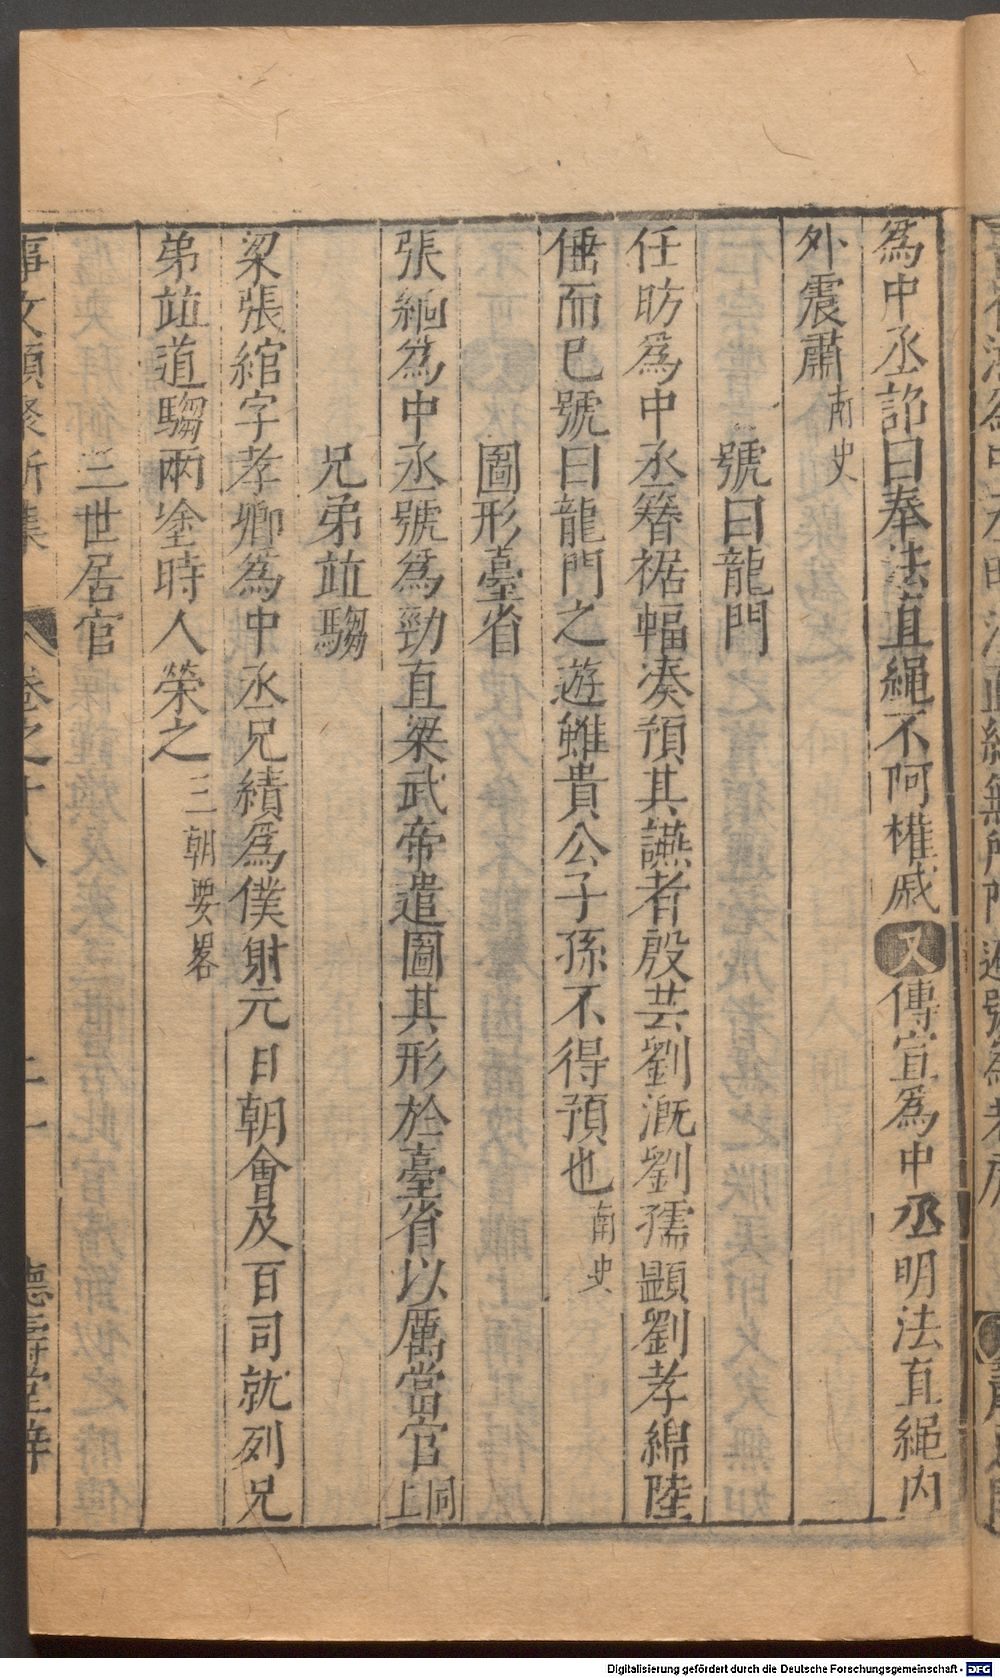 爲中丞詔曰奉法直繩不阿權戚又傳宣爲中丞明法直繩内
外震肅南史
號曰龍門
任昉爲中丞簪裾輻湊預其讌者殷芸劉溉劉孺顯劉孝綽陸
倕而已號曰龍門之遊雖貴公子孫不得預也南史
圖形臺省
張緬爲中丞號爲勁直梁武帝遣圖其形於臺省以厲當官同上
兄弟並騶
梁張綰字孝卿爲中丞兄纘爲僕射元日朝會及百司就列兄
弟並道騶兩塗時人榮之三朝要畧
三世居官
事文類聚新集 卷之十八 二十一 德壽堂梓
Digitalisierung gefördert durch die Deutsche Forschungsgemeinschaft - DFG